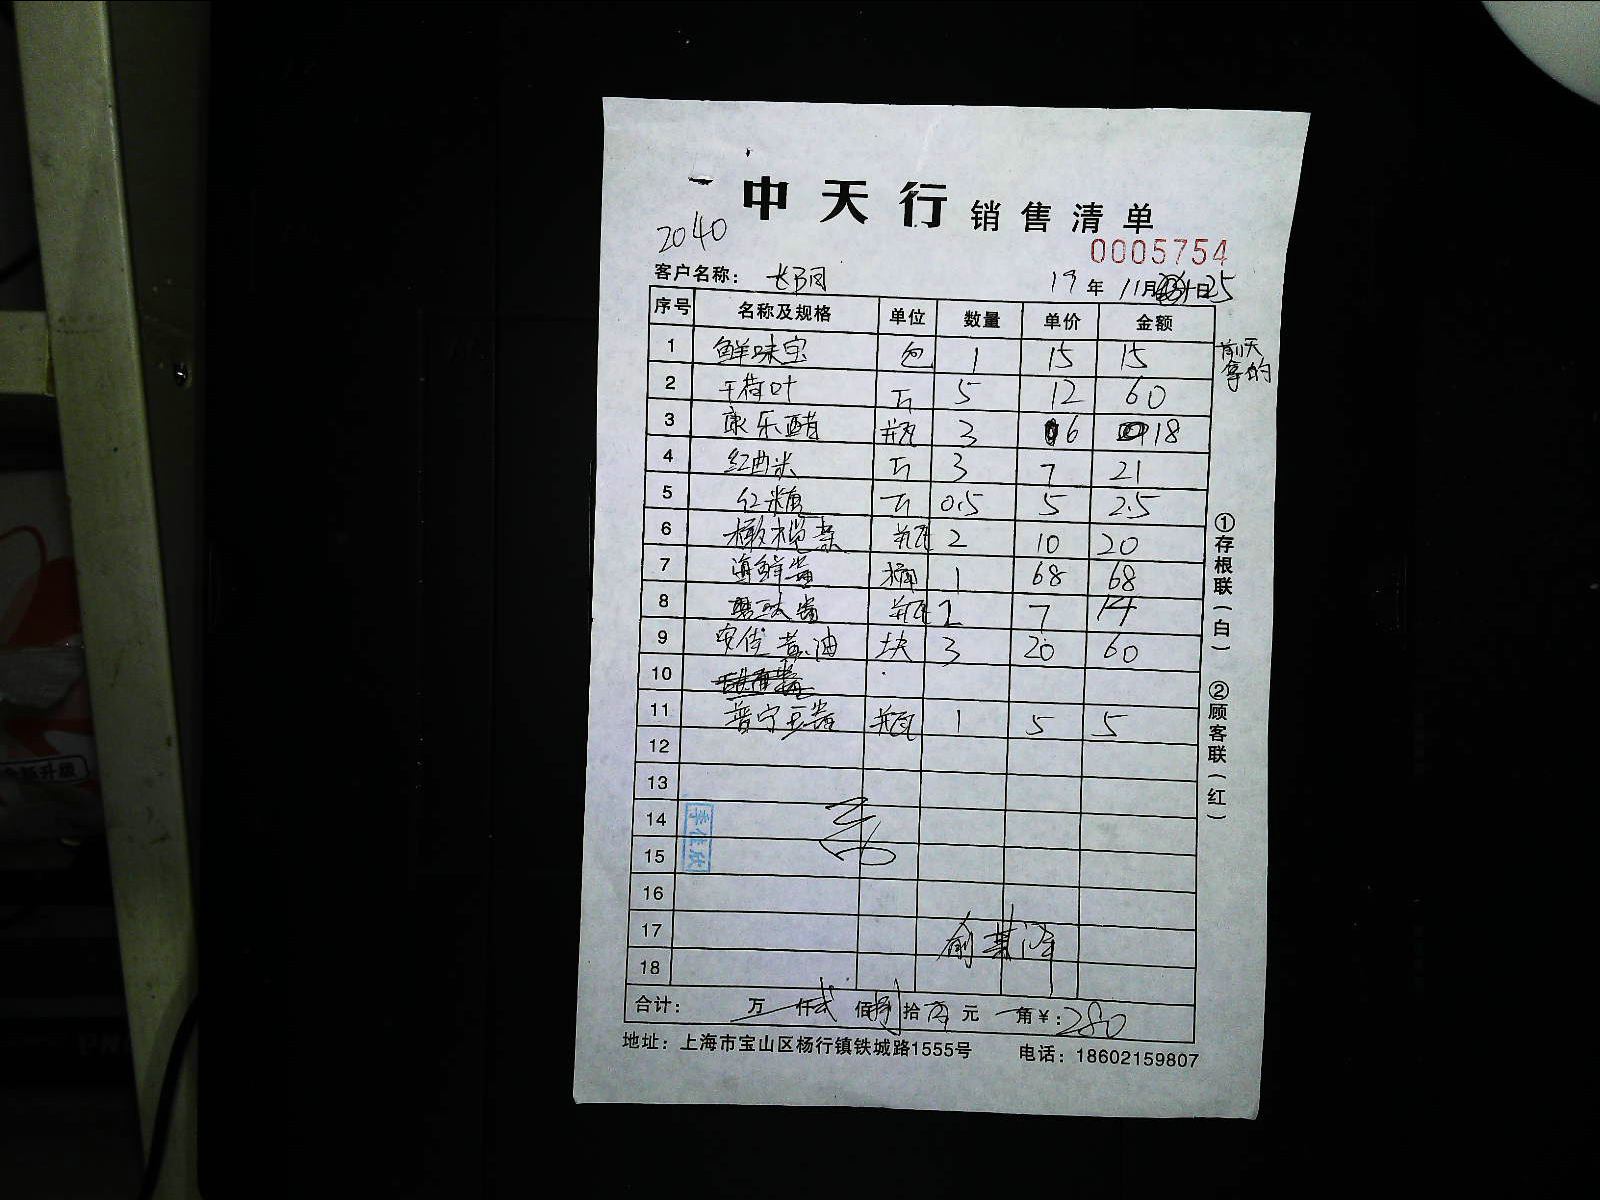 中天行 销售清单
2040
0005754
客户名称：
19年11月25日
序号 名称及规格 单位 数量 单价 金额
1 鲜味宝 包 1 15 15
前天拿的
2 干荷叶 斤 5 12 60
3 康乐醋 瓶 3 6 18
4 红曲米 斤 3 7 21
5 红糖 斤 0.5 5 2.5
6 橄榄菜 瓶 2 10 20
7 海鲜酱 桶 1 68 68
8 酱 瓶 2 7 14
9 安佳黄油 块 3 20 60
10
11 普宁豆酱 瓶 1 5 5
12
13
14
15
16
17
18
李佳欣
合计： 万 仟贰佰捌拾 元 角￥：280
地址：上海市宝山区杨行镇铁城路1555号 电话：18602159807
①存根联（白） ②顾客联（红）
全新升级